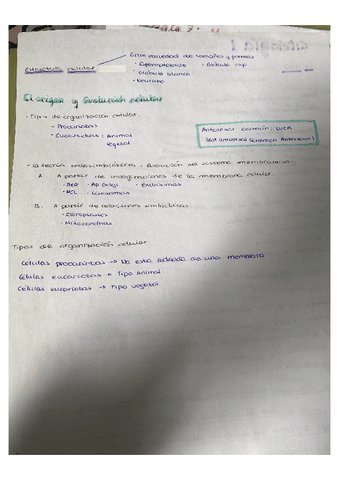 Gran variedad de tamaños y formas
Estructura celular
· Espermatozoide · Glóbulo rojo
· Glóbulo blanco
· Neurona
El origen y Evolución celular
· Tipos de organización celular
- Procariotas
- Eucariotas: Animal
Vegetal
Antecesor común: LUCA
(Last Universal Common Ancestor)
· La teoría endosimbiótica: Evolución del sistema membranoso
A. A partir de invaginaciones de la membrana celular.
· RER · Ap Golgi · Endosomas
· REL · Lisosomas
B. A partir de relaciones simbióticas
· Cloroplastos
· Mitocondrias
Tipos de organización celular
Células procariotas → No está rodeada de una membrana
Células eucariotas → Tipo Animal
Células eucariotas → Tipo vegetal